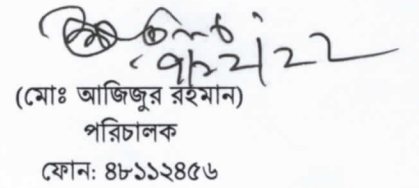 (মোঃ আজিজুর রহমান)
পরিচালক
ফোন: ৪৮১১২৪৫৬